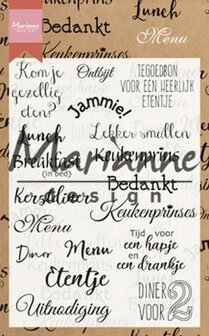 Marianne
Design
Lunch
Bedankt
Menu
Keukenprinses
Kom je
gezellig
eten?
Ontbijt
TEGOEDBON
VOOR EEN HEERLIJK
ETENTJE
Jammie!
Lunch
Lekker smullen
Breakfast
(in bed)
Keukenprins
Marianne
design
Kerstdiner
Bedankt
Keukenprinses
Menu
Tijd voor
een hapje
en een drankje
Diner
Menu
Etentje
Uitnodiging
DINER
VOOR 2